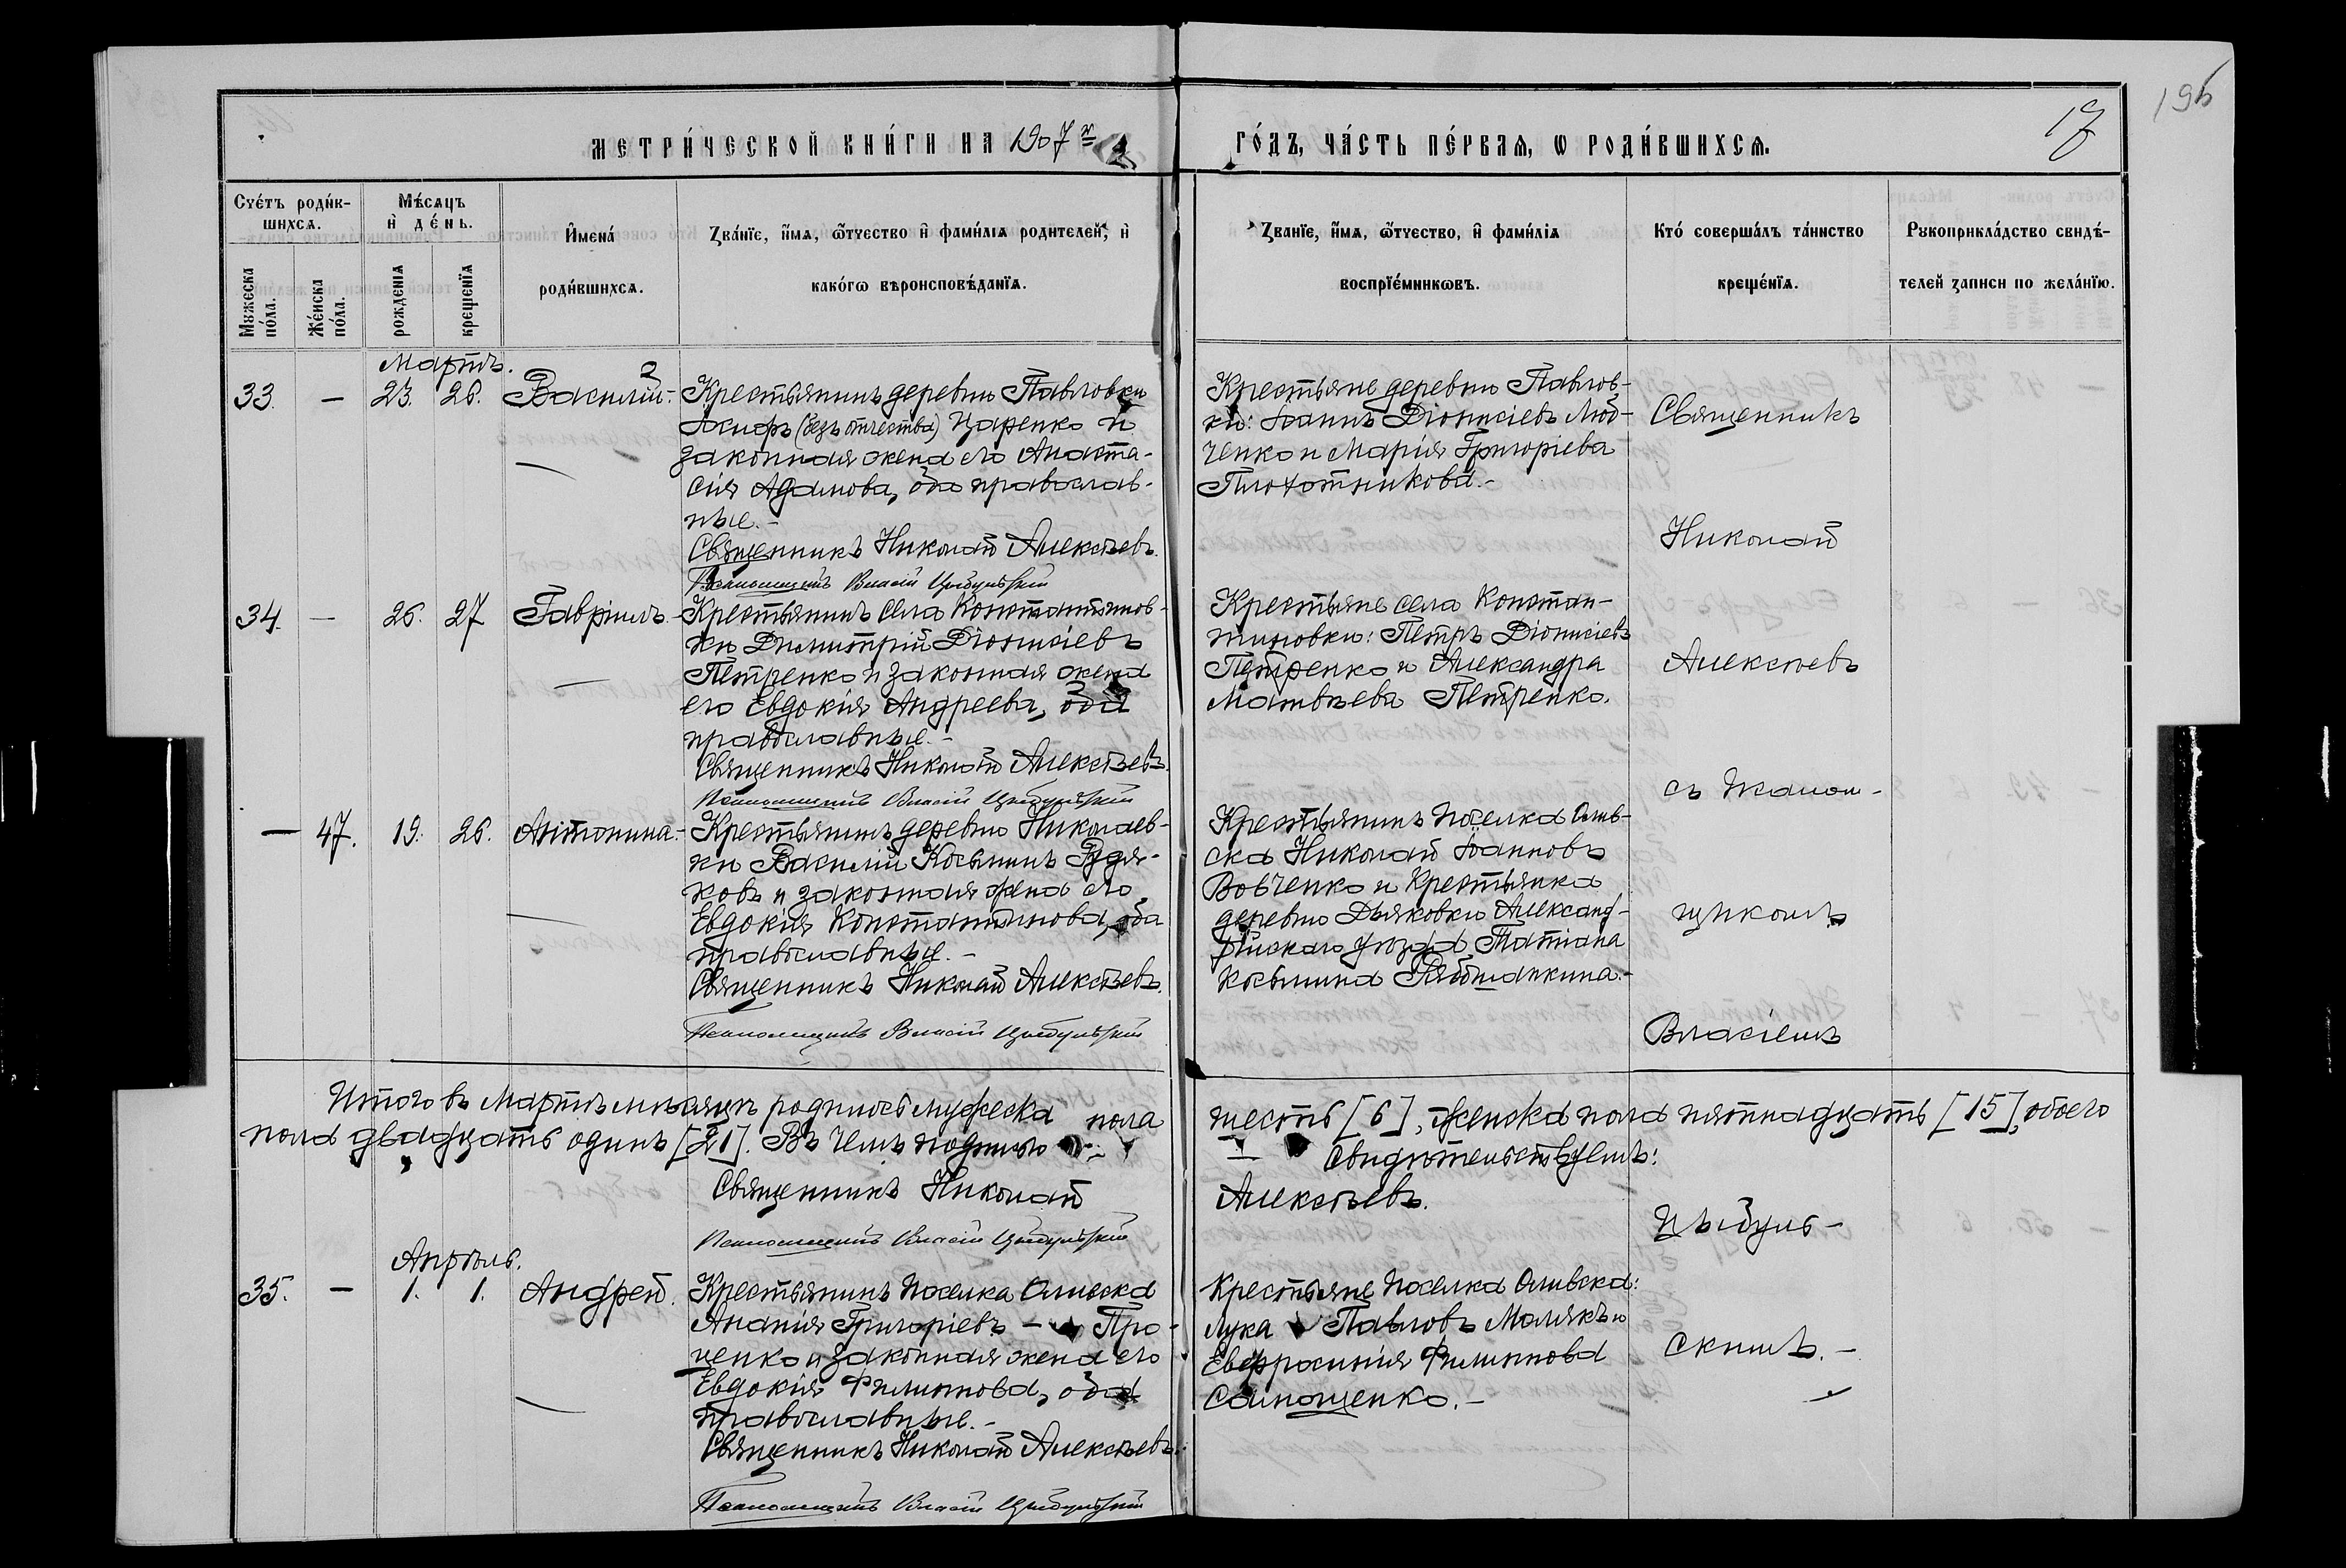 195
17
МЕТРИ́ЧЕСКОЙ КНИ́ГИ НА 1907 й
ГО́ДЪ, ЧА́СТЬ ПЕ́РВАЯ, Ѡ РОДИ́ВШИХСѦ.
Счётъ роди́в-
шихсѧ.
Мѣ́сѧцъ
и҆ де́нь.
И҆мена́
роди́вшихсѧ.
Зва́нїе, и҆́мѧ, ѻ҆́тчество и҆ фами́лїѧ родителей, и҆
како́гѡ вѣроисповѣ́данїѧ.
Зва́нїе, и҆́мѧ, ѻ҆́тчество, и҆ фами́лїѧ
воспрїе́мниковъ.
Кто́ соверша́лъ та́инство
креще́нїѧ.
Рꙋкоприкла́дство свидѣ́-
телей записи по жела́нїю.
Мꙋжеска
по́ла.
Же́нска
по́ла.
рожденїѧ
крещенїѧ
Мартъ.
33. — 23. 26. Василій.-
Крестьянинъ деревни Павловки
Іосифъ (безъ отчества) Царенко и
законная жена его Анаста-
сія Адамова, оба православ-
ные.-
Священникъ Николай Алексѣевъ.
Псаломщикъ Власій Цыбульскій
Крестьяне деревни Павлов-
ки: Іоаннъ Діонисіевъ Люб-
ченко и Марія Григоріева
Плохотникова.-
34. — 26. 27 Гавріилъ.-
Крестьянинъ села Константинов-
ки Димитрій Діонисіевъ
Петренко и законная жена
его Евдокія Андреева, оба
православные.-
Священникъ Николай Алексѣевъ.
Псаломщикъ Власій Цыбульскій
Крестьяне села Констан-
тиновки: Петръ Діонисіевъ
Петренко и Александра
Матвѣева Петренко.
— 47. 19. 26. Антонина.-
Крестьянинъ деревни Николаев-
ки Василій Косьминъ Рудя-
ковъ и законная жена его
Евдокія Константинова, оба
православные.-
Священникъ Николай Алексѣевъ.
Псаломщикъ Власій Цыбульскій
Крестьянинъ поселка Ольв-
ска Николай Іоанновъ
Вовченко и крестьянка
деревни Дьяковки Александ-
рійскаго уѣзда Татіана
Косьмина Рябошапкина.-
Священникъ
Николай
Алексѣевъ
съ Псалом-
щикомъ
Власіемъ
Цыбуль-
скимъ.-
Итого въ Мартѣ мѣсяцѣ родилось мужеска пола
шесть [6], женска пола пятнадцать [15], обоего
пола двадцать одинъ [21]. Въ чемъ подписью
свидѣтельствуемъ:
Священникъ Николай
Алексѣевъ.
Псаломщикъ Власій Цыбульскій
Апрѣль.
35. — 1. 1. Андрей.
Крестьянинъ поселка Ольвска
Ананія Григоріевъ — Про-
ценко и законная жена его
Евдокія Филиппова, оба
православные.-
Священникъ Николай Алексѣевъ.
Псаломщикъ Власій Цыбульскій
Крестьяне поселка Ольвска:
Лука Павловъ Малякъ и
Евфросинія Филиппова
Самощенко.-